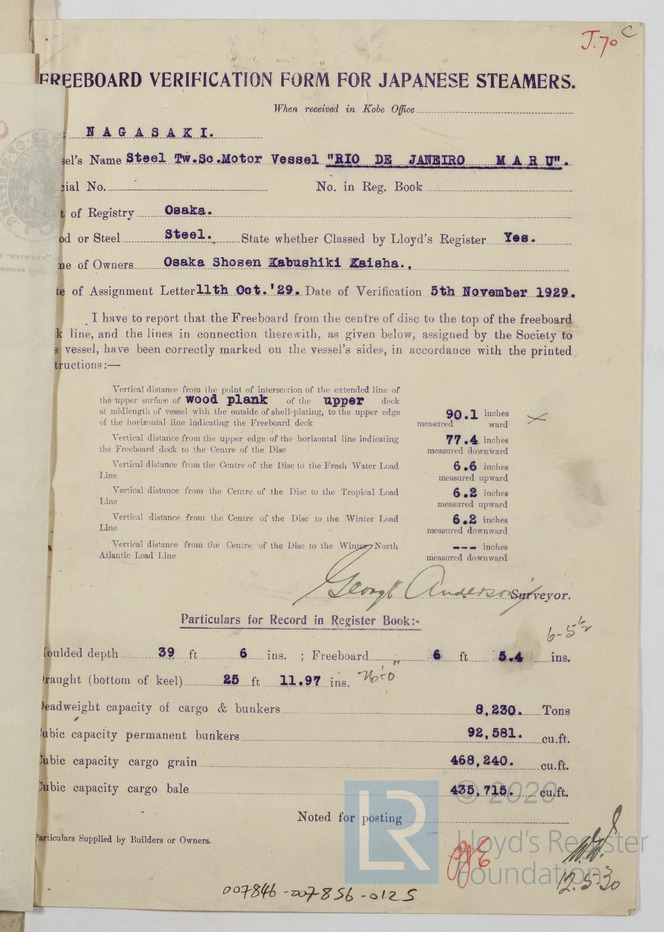 J.70 C
FREEBOARD VERIFICATION FORM FOR JAPANESE STEAMERS.
When received in Kobe Office
NAGASAKI.
sel's Name Steel Tw.Sc.Motor Vessel "RIO DE JANEIRO MARU".
cial No. No. in Reg. Book
t of Registry Osaka.
od or Steel Steel. State whether Classed by Lloyd's Register Yes.
me of Owners Osaka Shosen Kabushiki Kaisha.,
te of Assignment Letter 11th Oct.'29. Date of Verification 5th November 1929.
I have to report that the Freeboard from the centre of disc to the top of the freeboard
k line, and the lines in connection therewith, as given below, assigned by the Society to
s vessel, have been correctly marked on the vessel's sides, in accordance with the printed
tructions:—
Vertical distance from the point of intersection of the extended line of
the upper surface of wood plank of the upper deck
at midlength of vessel with the outside of shell-plating, to the upper edge
of the horizontal line indicating the Freeboard deck
90.1 inches
measured ward
Vertical distance from the upper edge of the horizontal line indicating
the Freeboard deck to the Centre of the Disc
77.4 inches
measured downward
Vertical distance from the Centre of the Disc to the Fresh Water Load
Line
6.6 inches
measured upward
Vertical distance from the Centre of the Disc to the Tropical Load
Line
6.2 inches
measured upward
Vertical distance from the Centre of the Disc to the Winter Load
Line
6.2 inches
measured downward
Vertical distance from the Centre of the Disc to the Winter North
Atlantic Load Line
--- inches
measured downward
George Anderson Surveyor.
Particulars for Record in Register Book:-
6-5½
Moulded depth 39 ft 6 ins. ; Freeboard 6 ft 5.4 ins.
Draught (bottom of keel) 25 ft 11.97 ins. 26'-0"
Deadweight capacity of cargo & bunkers 8,230. Tons
Cubic capacity permanent bunkers 92,581. cu.ft.
Cubic capacity cargo grain 468,240. cu.ft.
Cubic capacity cargo bale 435,715. cu.ft.
Noted for posting
Particulars Supplied by Builders or Owners.
© 2020
LR Lloyd's Register
Foundation
12.5.30
007846-007856-0125